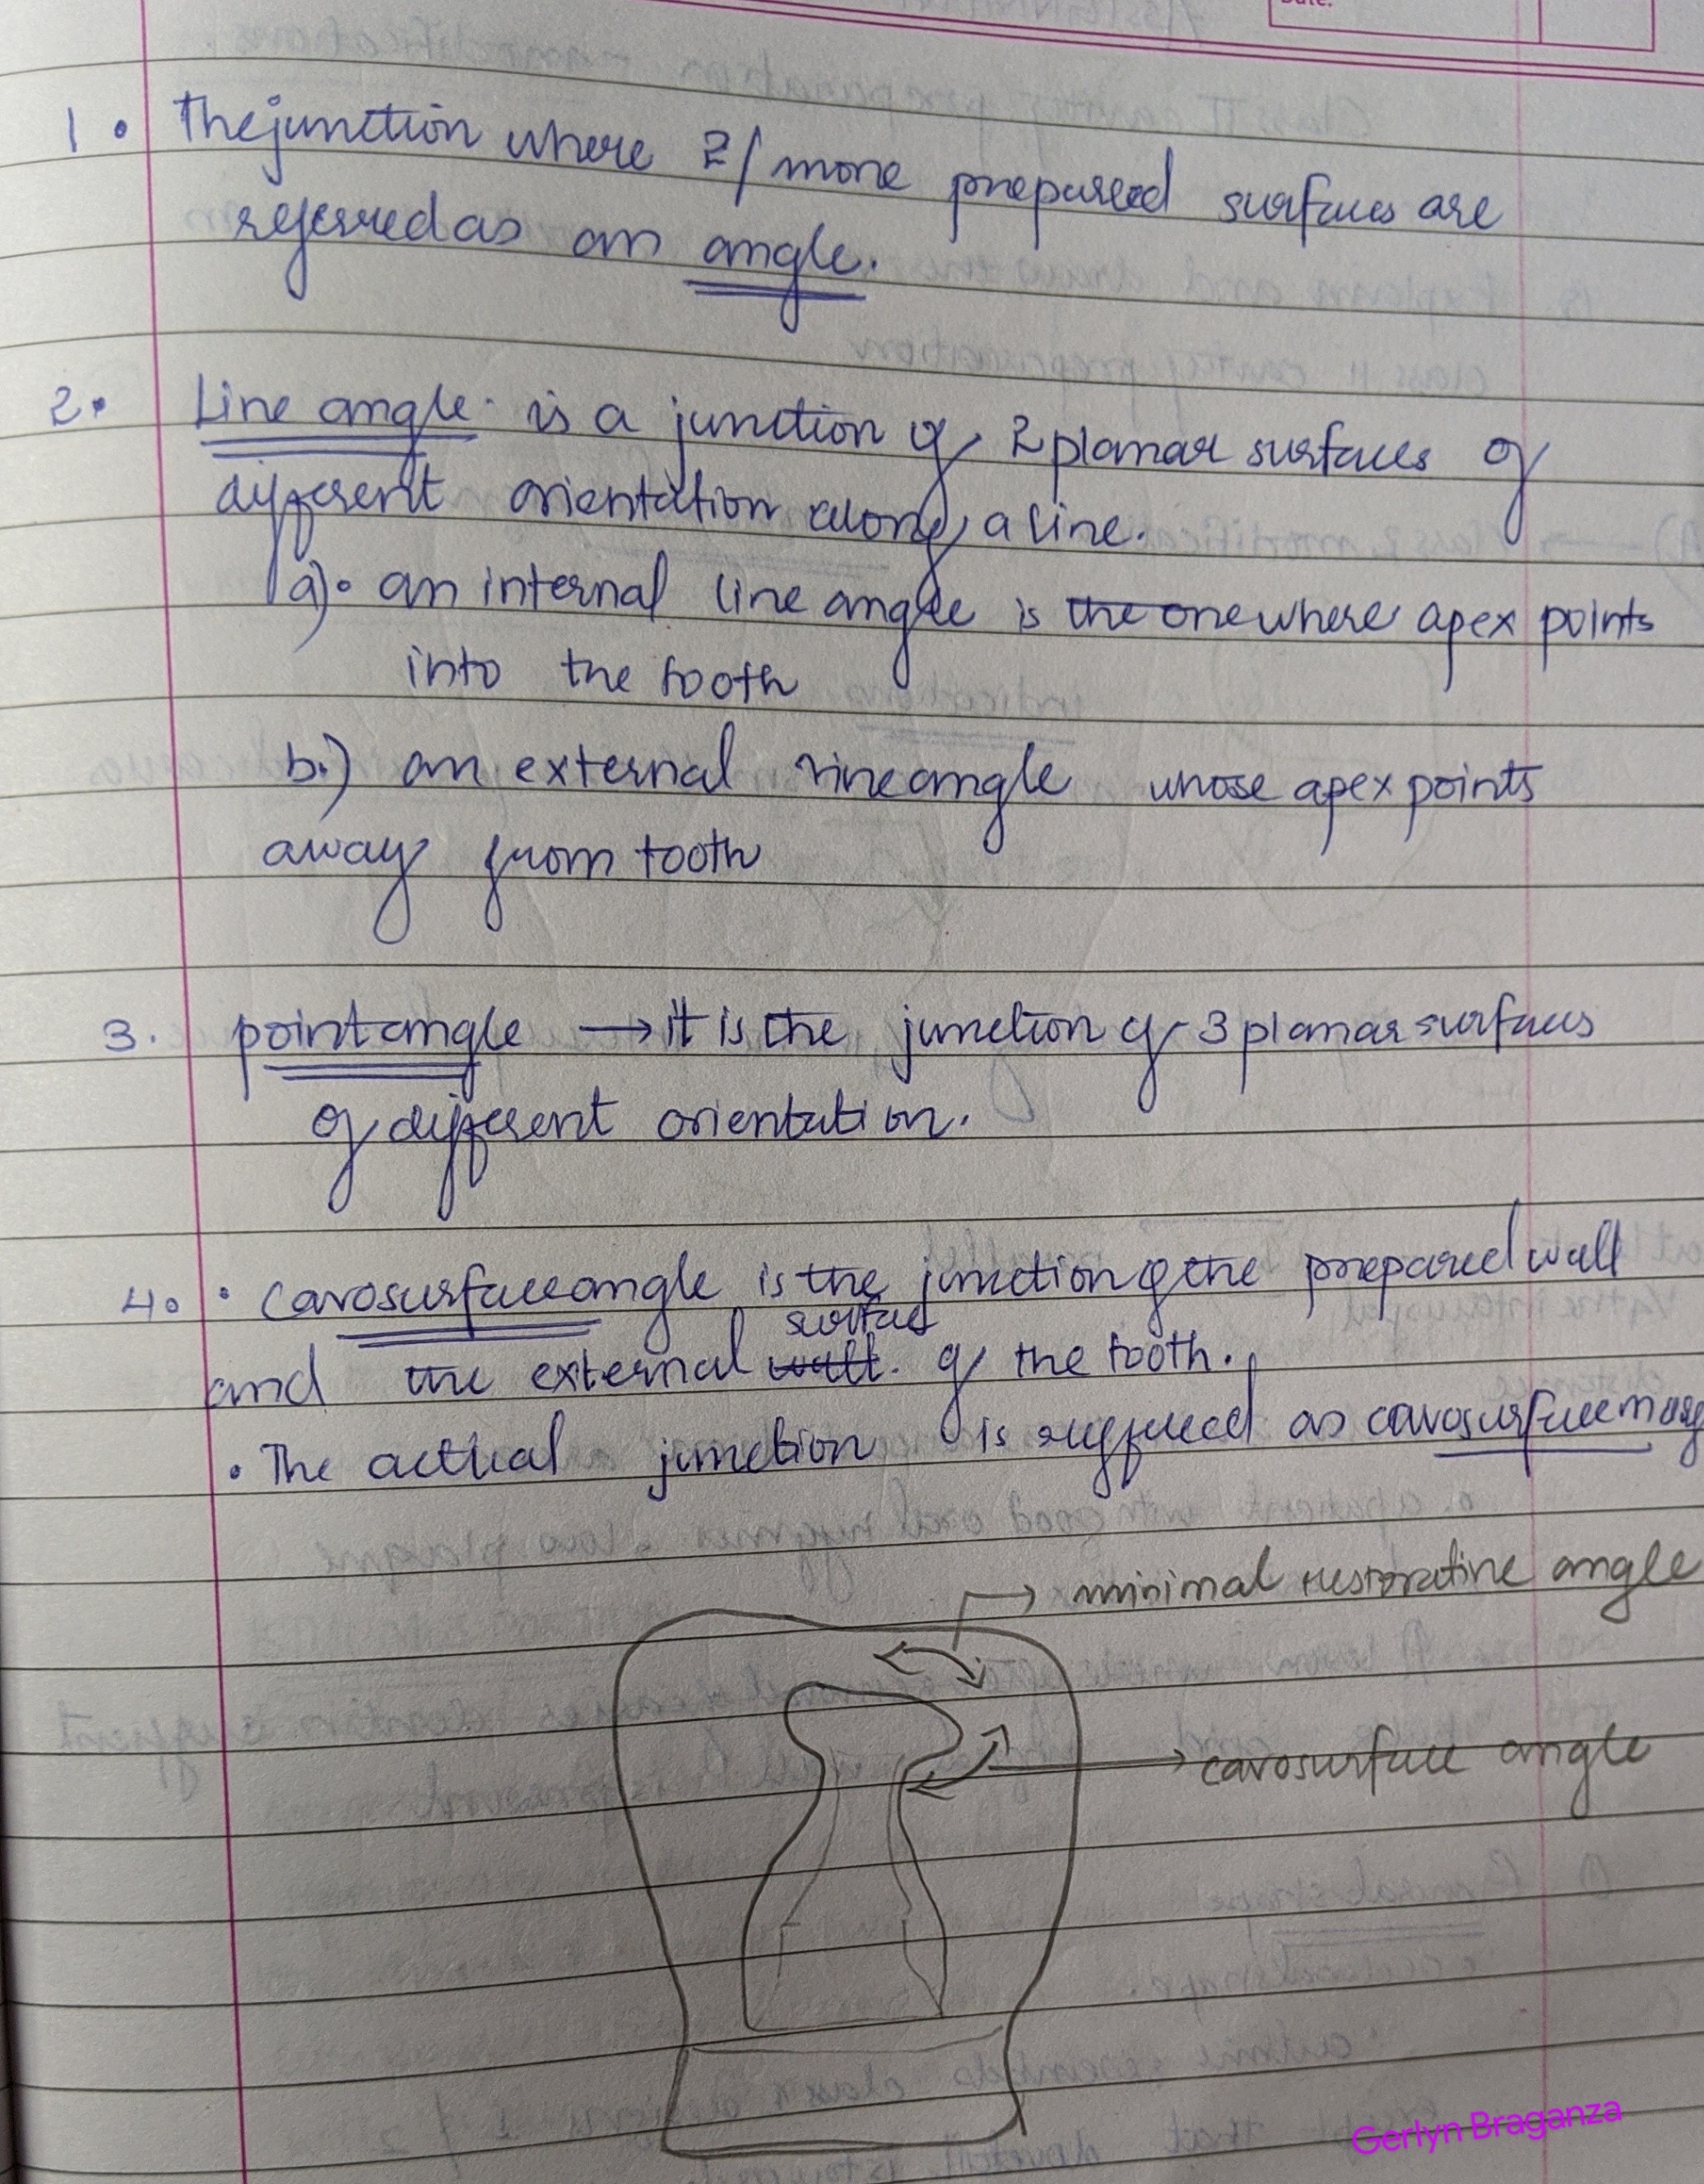 Date:
1. The junction where 2/more prepared surfaces are
referred as an angle.
2. Line angle is a junction of 2 planar surfaces of
different orientation along a line.
a). an internal line angle is the one where apex points
into the tooth
b.) an external line angle whose apex points
away from tooth
3. point angle → it is the junction of 3 planar surfaces
of different orientation.
4. • cavosurface angle is the junction of the prepared wall
surface
and the external wall. of the tooth.
• The actual junction is reffered as cavosurface marg
minimal restorative angle
cavosurface angle
Gerlyn Braganza